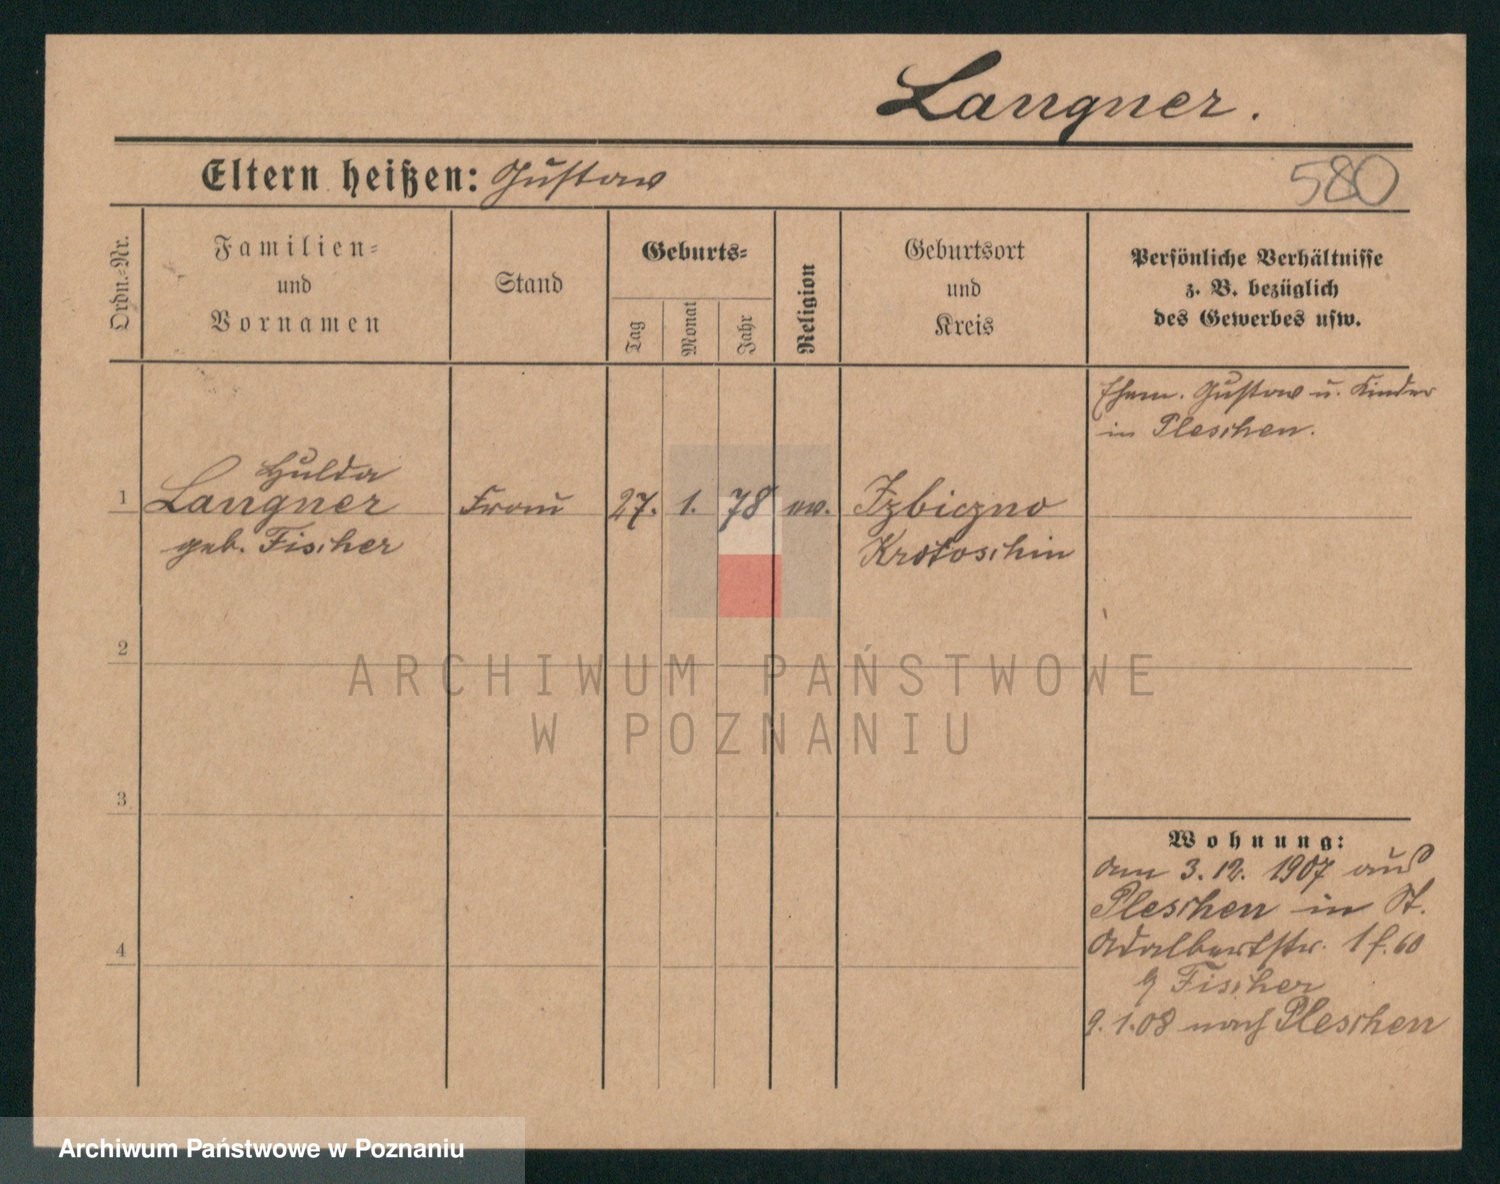 Langner.
Eltern heißen: Gustav
580
Ordn.-Nr.
Familien-
und
Vornamen
Stand
Geburts-
Tag
Monat
Jahr
Religion
Geburtsort
und
Kreis
Persönliche Verhältnisse
z. B. bezüglich
des Gewerbes usw.
Ehem. Gustav u. Kinder
in Pleschen.
Hulda
1 Langner Frau 27. 1. 78 ev. Izbiczno
geb. Fischer Krotoschin
2
ARCHIWUM PAŃSTWOWE
W POZNANIU
3
Wohnung:
am 3.12. 1907 aus
Pleschen in St.
Adalbertstr. 1
Fischer
9.1.08 nach Pleschen
4
Archiwum Państwowe w Poznaniu